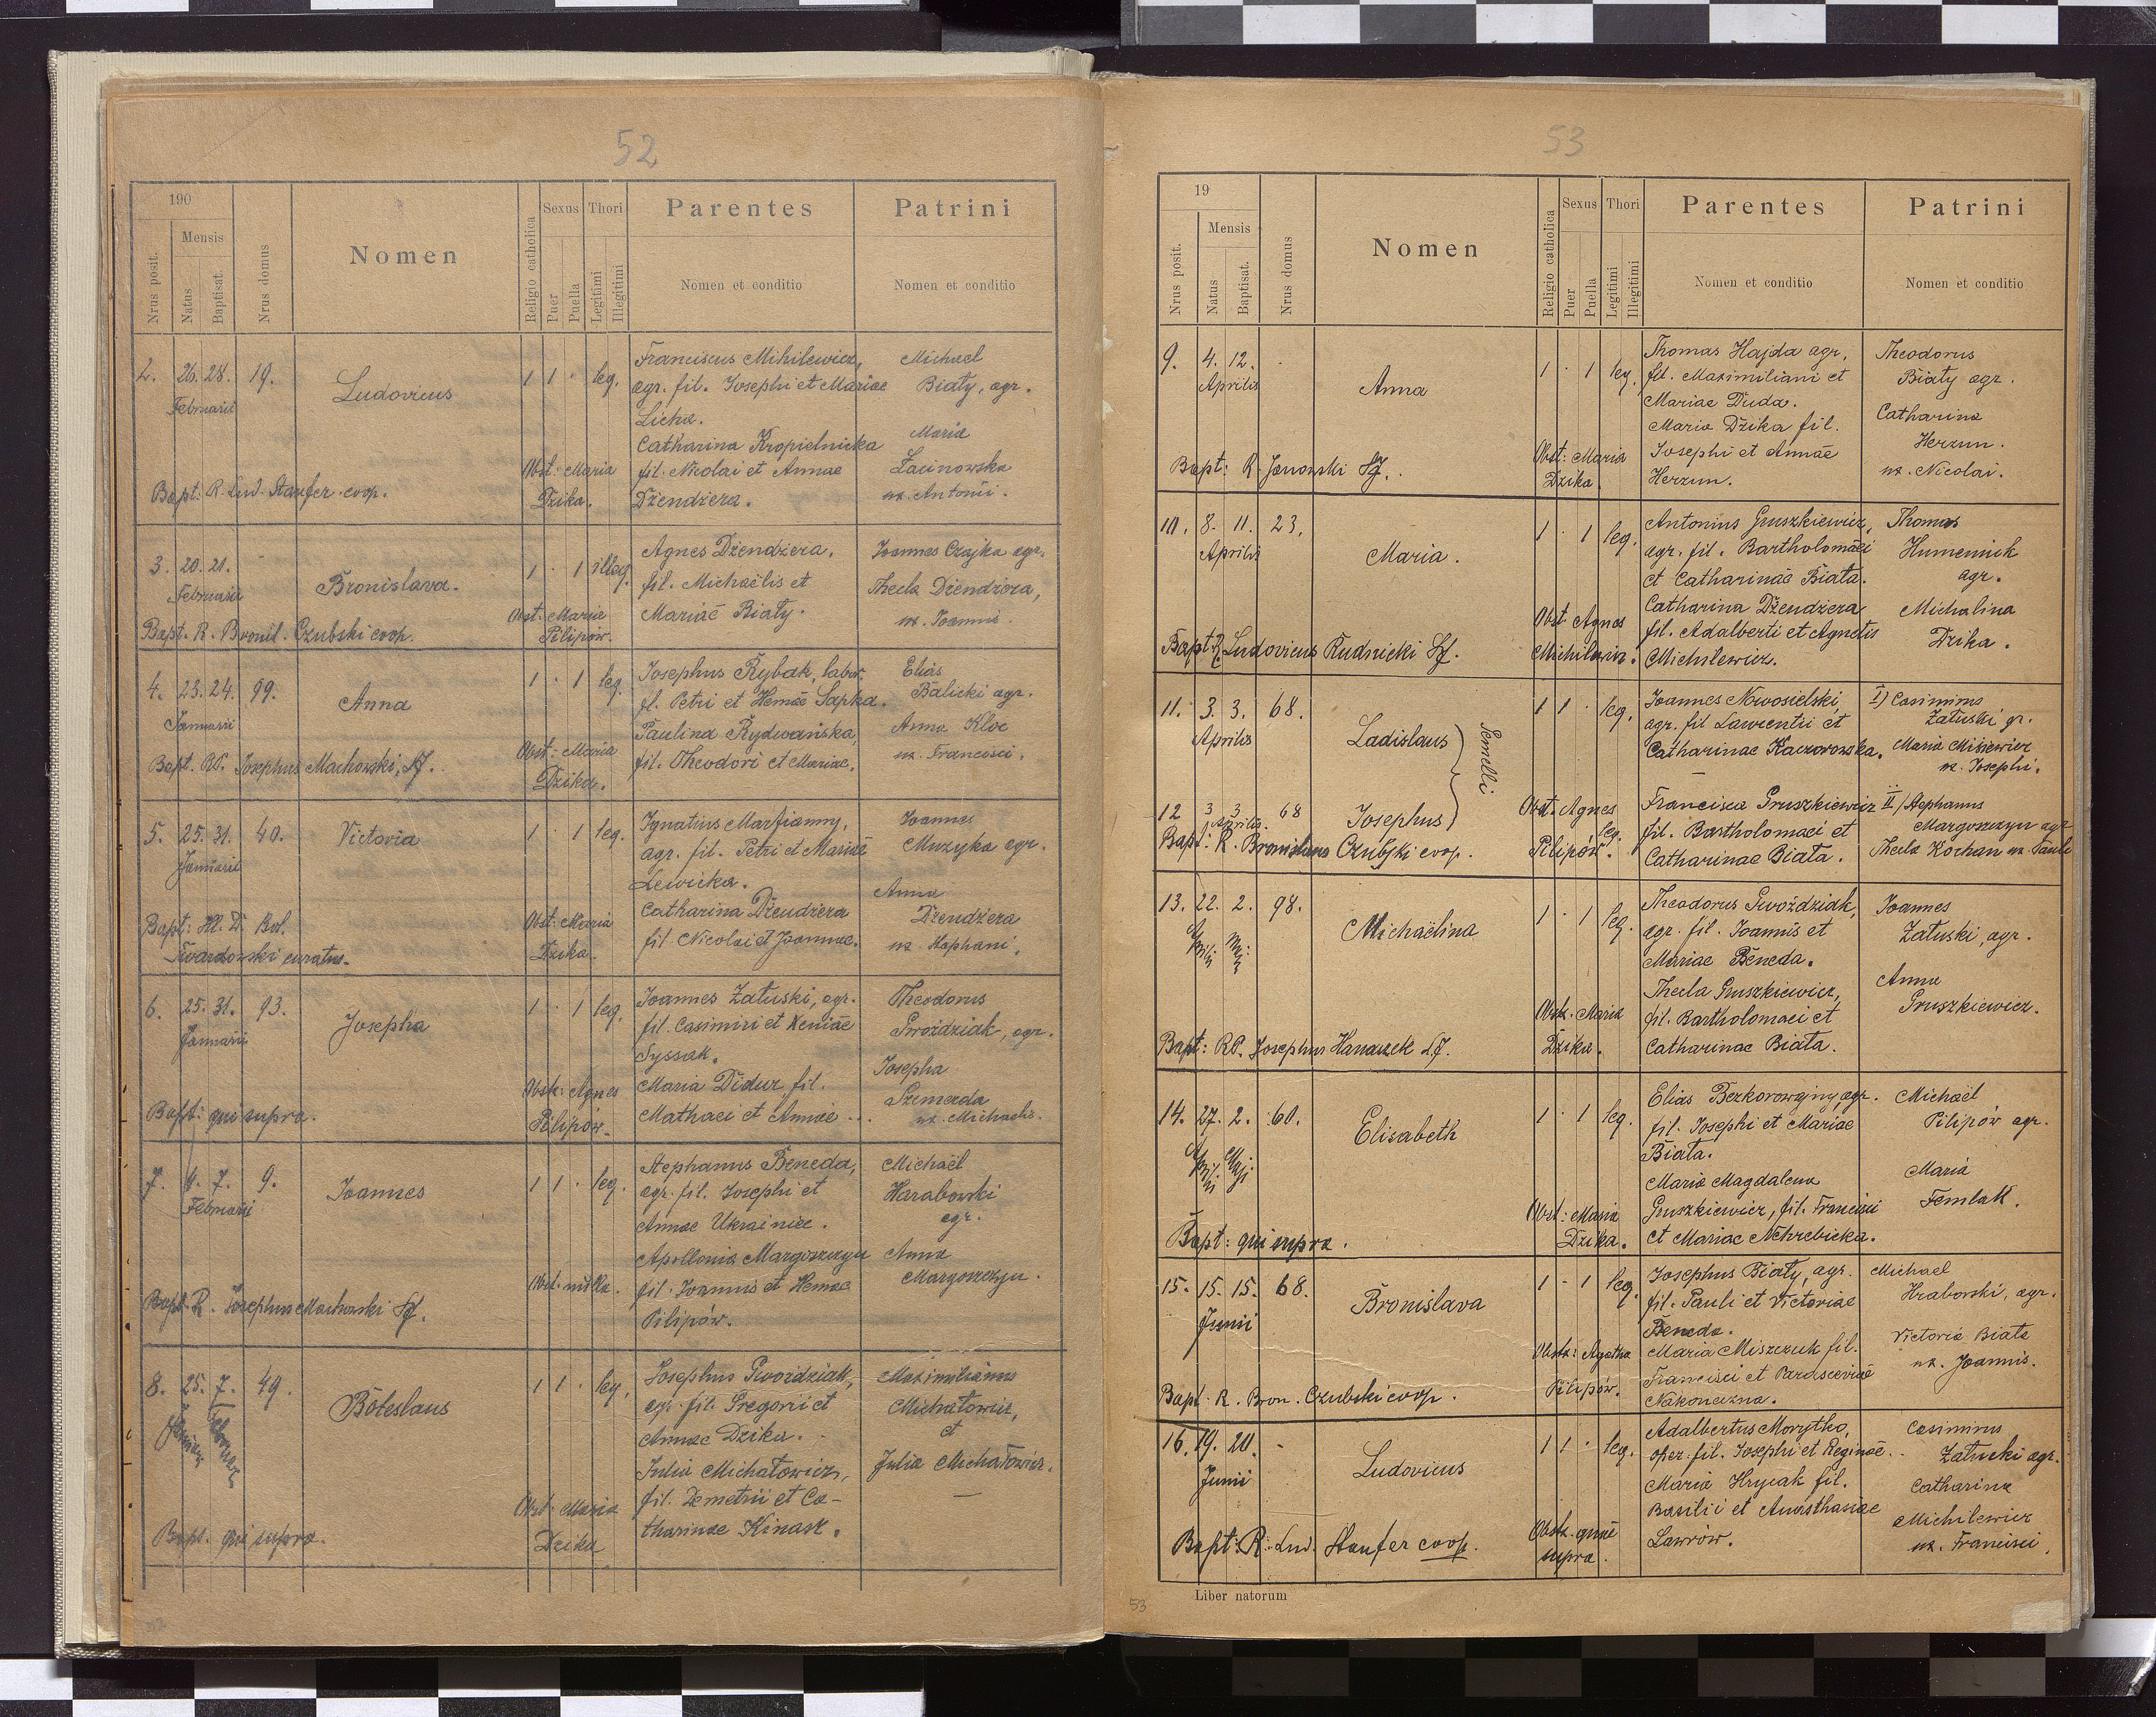 52
190
Mensis
Nrus posit.
Natus
Baptisat.
Nrus domus
Nomen
Religio catholica
Sexus
Puer
Puella
Thori
Legitimi
Illegitimi
Parentes
Nomen et conditio
Patrini
Nomen et conditio
2. 26. 28. 19.
Februarii
Ludovicus
1 1 · leg.
Franciscus Mihilewicz,
agr. fil. Josephi et Mariae
Licha.
Catharina Kropielnicka
fil. Nicolai et Annae
Dżendżera.
Michael
Biały, agr.
Maria
Łacinowska
ux. Antonii.
Obst: Maria
Dzika.
Bapt: R. Lud. Staufer coop.
3. 20. 21. -
Februarii
Bronislava.
1 · 1 illeg.
Agnes Dżendżera,
fil. Michaëlis et
Mariaē Biały.
Joannes Czajka agr.
Thecla Dżendżera,
ux. Joannis.
Obst: Maria
Pilipów.
Bapt. R. Bronisl. Czubski coop.
4. 23. 24. 99.
Januarii
Anna
1 · 1 leg.
Josephus Rybak, labor.
fil. Petri et Hemaē Sapka.
Paulina Rydwańska,
fil. Theodori et Mariae.
Elias
Balicki agr.
Anna Kloc
ux. Francisci.
Obst: Maria
Dzika.
Bapt. RP. Josephus Machowski, SJ.
5. 25. 31. 40.
Januarii
Victoria
1 · 1 leg.
Ignatius Marfianny,
agr. fil. Petri et Mariaē
Lewicka.
Catharina Dżendżera
fil. Nicolai et Joannae.
Joannes
Muzyka agr.
Anna
Dżendżera
ux. Stephani.
Obst: Maria
Dzika.
Bapt: Ill. D. Bol.
Twardowski curatus.
6. 25. 31. 93.
Januarii
Josepha
1 · 1 leg.
Joannes Załuski, agr.
fil. Casimiri et Xeniaē
Syssak.
Maria Didur fil.
Mathaei et Annaē
Theodorus
Gwoździak, agr.
Josepha
Szemerda
ux. Michaelis.
Obst: Agnes
Pilipów.
Bapt: qui supra.
7. 4. 7. 9.
Februarii
Joannes
1 1 · leg.
Stephanus Beneda,
agr. fil. Josephi et
Annae Ukrainiec.
Apollonia Margoszczyn
fil. Joannis et Hemae
Pilipów.
Michaël
Harabowski
agr.
Anna
Margoszczyn.
Obst. nulla.
Bapt. R. Josephus Machowski SJ.
8. 25. 7. 49.
Januarii Februarii
Boleslaus
1 1 · leg.
Josephus Gwoździak,
agr. fil. Gregorii et
Annae Dzika.
Julia Michałowicz,
fil. Demetrii et Ca-
tharinae Kinasz.
Maximilianus
Michałowicz,
et
Julia Michałowicz.
Obst: Maria
Dzika
Bapt. qui supra.
53
19
Mensis
Nrus posit.
Natus
Baptisat.
Nrus domus
Nomen
Religio catholica
Sexus
Puer
Puella
Thori
Legitimi
Illegitimi
Parentes
Nomen et conditio
Patrini
Nomen et conditio
9. 4. 12. -
Aprilis
Anna
1 · 1 leg.
Thomas Hajda agr,
fil. Maximiliani et
Mariae Duda.
Maria Dzika fil.
Josephi et Annaē
Herzun.
Theodorus
Biały agr.
Catharina
Herzun.
ux. Nicolai.
Obst: Maria
Dzika.
Bapt: R. Janowski SJ.
10. 8. 11. 23.
Aprilis
Maria.
1 · 1 leg.
Antonius Gruszkiewicz,
agr. fil. Bartholomaēi
et Catharinaē Biała.
Catharina Dżendżera
fil. Adalberti et Agnetis
Michilewicz.
Thomas
Humennik
agr.
Michalina
Dzika.
Obst. Agnes
Michilewicz.
Bapt R. Ludovicus Rudnicki SJ.
11. 3. 3. 68.
Aprilis
Ladislaus
Gemelli
1 1 · leg.
Joannes Nowosielski,
agr. fil Laurentii et
Catharinae Kaczorowska.
I) Casimirus
Załuski gr.
Maria Misiewicz
ux. Josephi.
12 3 3 68
Aprilis.
Josephus
leg.
Francisca Gruszkiewicz
fil. Bartholomaei et
Catharinae Biała.
II/ Stephanus
Margoszczyn agr
Thecla Kochan ux. Pauli
Obst. Agnes
Pilipów.
Bapt: R. Bronislaus Czubski coop.
13. 22. 2. 98.
Aprilis Maji
Michaëlina
1 · 1 leg.
Theodorus Gwoździak,
agr. fil. Joannis et
Mariae Beneda.
Thecla Gruszkiewicz,
fil. Bartholomaei et
Catharinae Biała.
Joannes
Załuski, agr.
Anna
Gruszkiewicz.
Obst. Maria
Dzika.
Bapt: RP. Josephus Hanaszek SJ.
14. 27. 2. 60.
Aprilis Maji
Elisabeth
1 · 1 leg.
Elias Bezkorowajny, agr.
fil. Josephi et Mariae
Biała.
Maria Magdalena
Gruszkiewicz, fil. Francisci
et Mariae Nehrebicka.
Michaël
Pilipów agr.
Maria
Femlak.
Obst: Maria
Dzika.
Bapt: qui supra.
15. 15. 15. 68.
Junii
Bronislava
1 - 1 leg.
Josephus Biały, agr.
fil. Pauli et Victoriae
Beneda.
Maria Miszczuk fil.
Francisci et Parasceviae
Nakoneczna.
Michael
Hraborski, agr.
Victoria Biała
ux. Joannis.
Obst: Agatha
Pilipów.
Bapt. R. Bron. Czubski coop.
16. 19. 20. -
Junii
Ludovicus
1 1 · leg.
Adalbertus Morytko,
oper. fil. Josephi et Reginaē.
Maria Hrycak fil.
Basilii et Anasthasiae
Lawrów.
Casimirus
Załuski agr.
Catharina
Michilewicz
ux. Francisci.
Obst. quaē
supra.
Bapt: R. Lud. Staufer coop.
Liber natorum
53